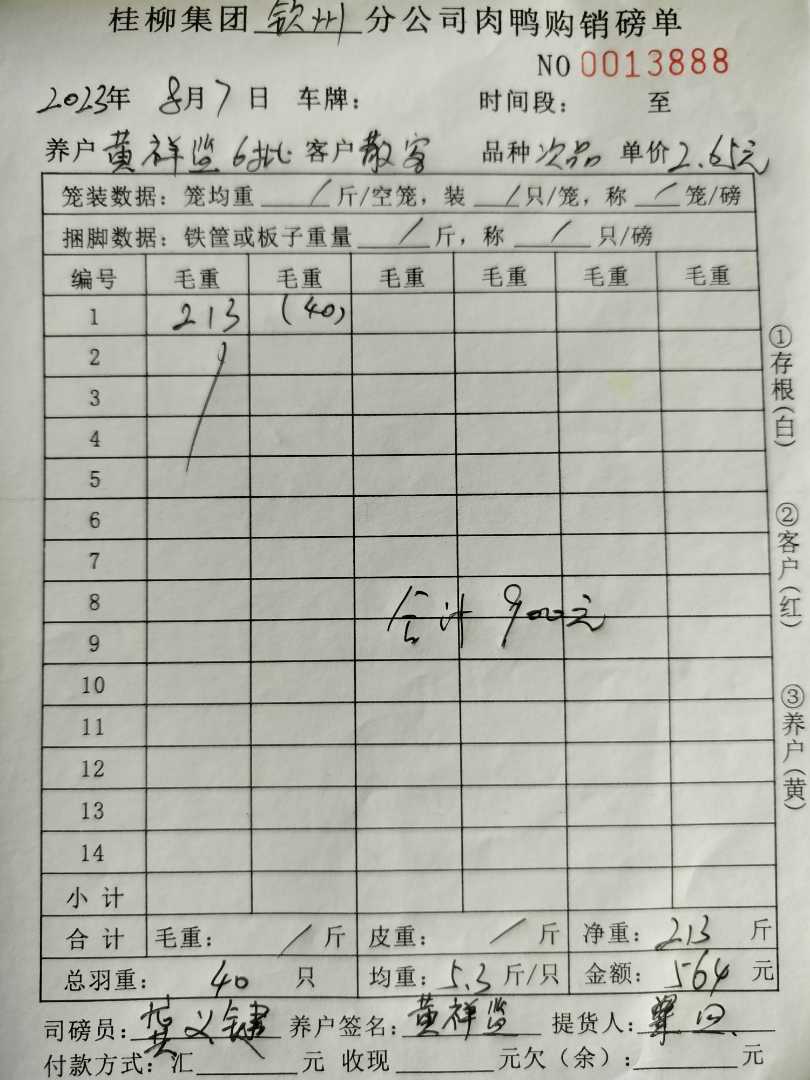 桂柳集团 钦州 分公司肉鸭购销磅单
NO 0013888
2023年 8月7日 车牌： 时间段： 至
养户 黄祥监 6批 客户 散客 品种 次品 单价 2.65元
笼装数据：笼均重 / 斤/空笼，装 / 只/笼，称 / 笼/磅
捆脚数据：铁筐或板子重量 / 斤，称 / 只/磅
编号 毛重 毛重 毛重 毛重 毛重 毛重
1 213 (40)
2
3
4
5
6
7
8
合计 900元
9
10
11
12
13
14
小计
合计 毛重： / 斤 皮重： / 斤 净重：213 斤
总羽重： 40 只 均重：5.3 斤/只 金额：564 元
司磅员： 养户签名：黄祥监 提货人：
付款方式：汇 元 收现 元欠（余）： 元
①存根（白）
②客户（红）
③养户（黄）